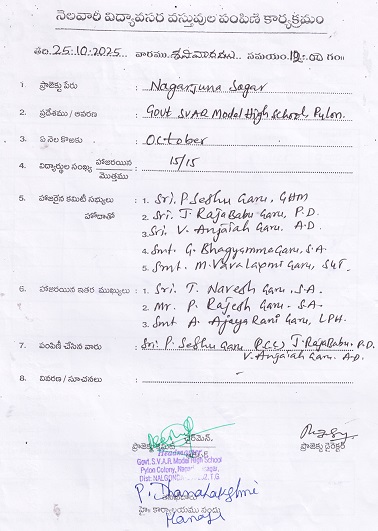 నెలవారీ విద్యావసర వస్తువుల పంపిణి కార్యక్రమం
తేది. 25.10.2025 వారము. శనివారము సమయం. 12.00 గం॥
1. ప్రాజెక్టు పేరు : Nagarjuna Sagar
2. ప్రదేశము / ఆవరణ : Govt SVAR Model High School Pylon.
3. ఏ నెల కొఱకు : October
4. విద్యార్థుల సంఖ్య హాజరయిన / మొత్తము : 15/15
5. హాజరైన కమిటీ సభ్యులు : 1. Sri. P Seshu Garu, GHM
హోదాతో 2. Sri. J. RajaBabu Garu, P.D.
3. Sri. V. Anjaiah Garu. A.D.
4. Smt. G. Bhagyamma Garu, S.A.
5. Smt. M. Varalaxmi Garu, SGT.
6. హాజరయిన ఇతర ముఖ్యులు : 1. Sri. T. Naresh Garu, S.A.
2. Mr. P. Rajesh Garu. S.A.
3. Smt A. Ajaya Rani Garu, LPH.
7. పంపిణీ చేసిన వారు : Sri. P. Seshu Garu (CC) J. RajaBabu. P.D.
V. Anjaiah Garu. A.D.
8. వివరణ / సూచనలు :
ప్రాజెక్టు ఛైర్మెన్,
ప్రాజెక్టు డైరెక్టర్
Headmaster
Govt. S.V.A.R. Model High School
Pylon Colony,
P. Dhanalakshmi